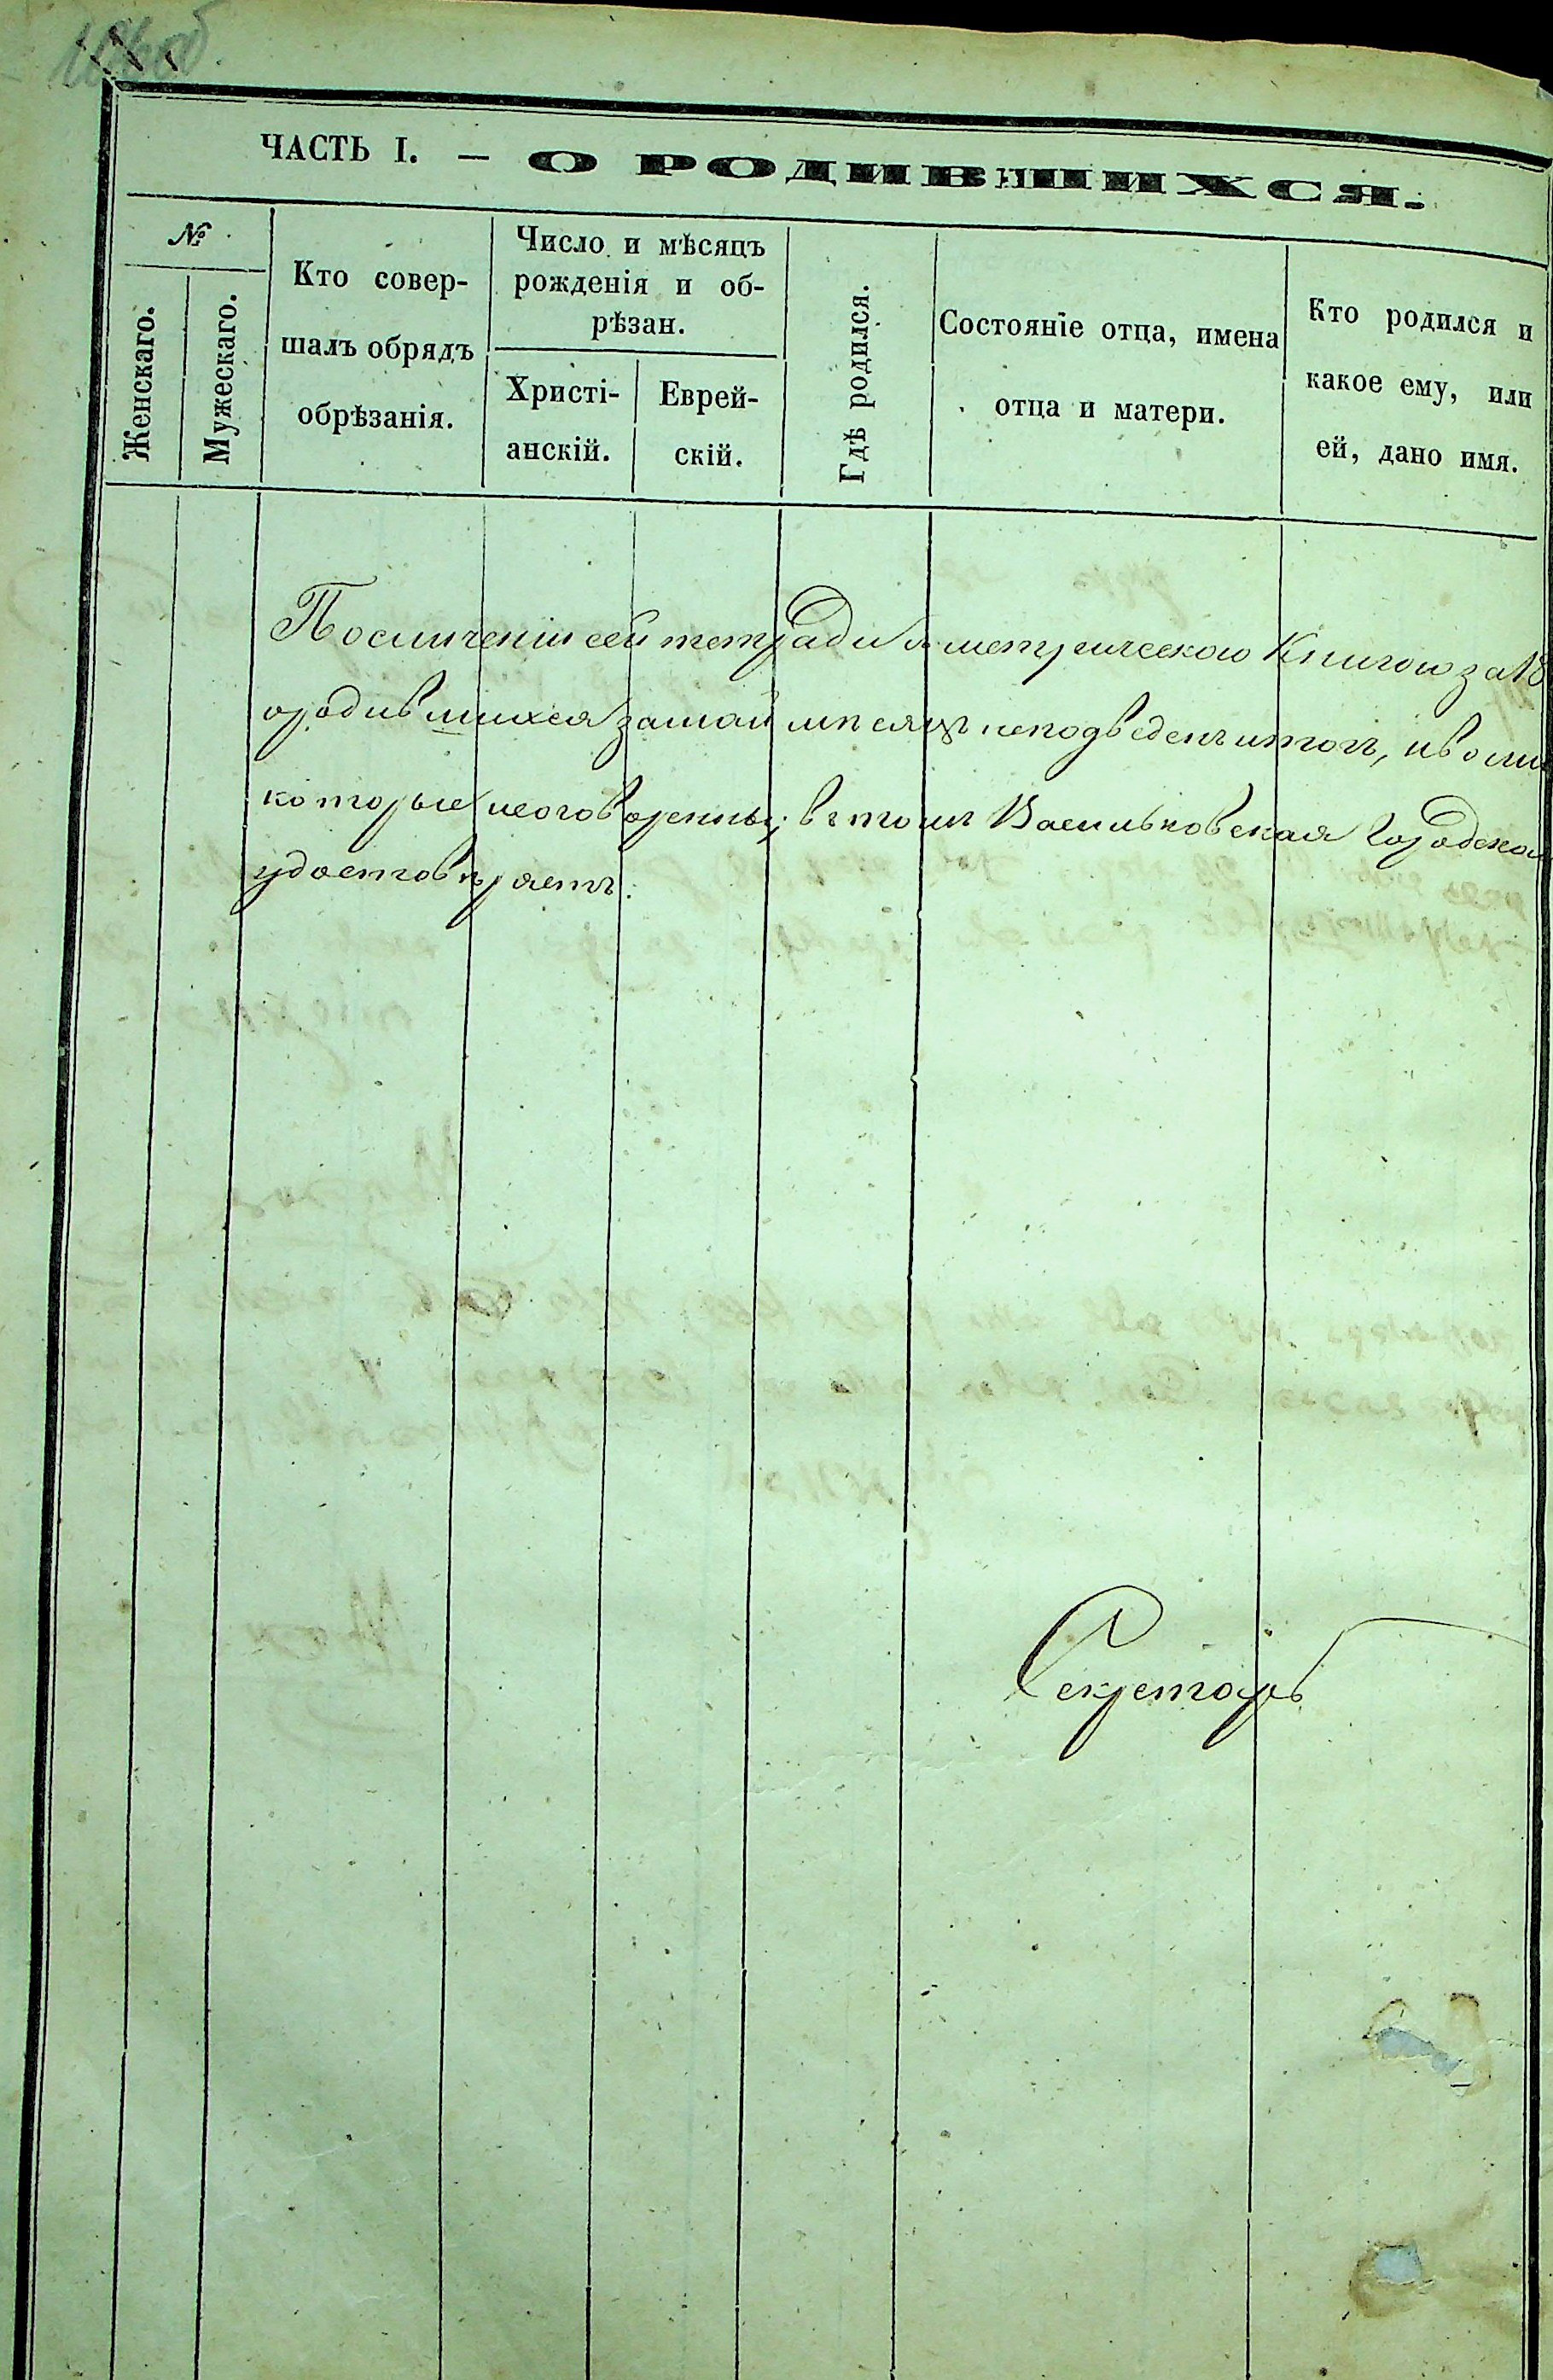 ЧАСТЬ I. — О РОДИВШИХСЯ.
№
Женскаго.
Мужескаго.
Кто совер-
шалъ обрядъ
обрѣзанія.
Число и мѣсяцъ
рожденія и об-
рѣзан.
Христі-
анскій.
Еврей-
скій.
Гдѣ родился.
Состояніе отца, имена
отца и матери.
Кто родился и
какое ему, или
ей, дано имя.
По сличеніи сей тетради съ метрическою Книгою за 18
о родившихся за май мѣсяцъ неподведенъ итогъ, и
которые неоговоренны; въ томъ Васильковская Городская
удостовѣряетъ.
Секретарь